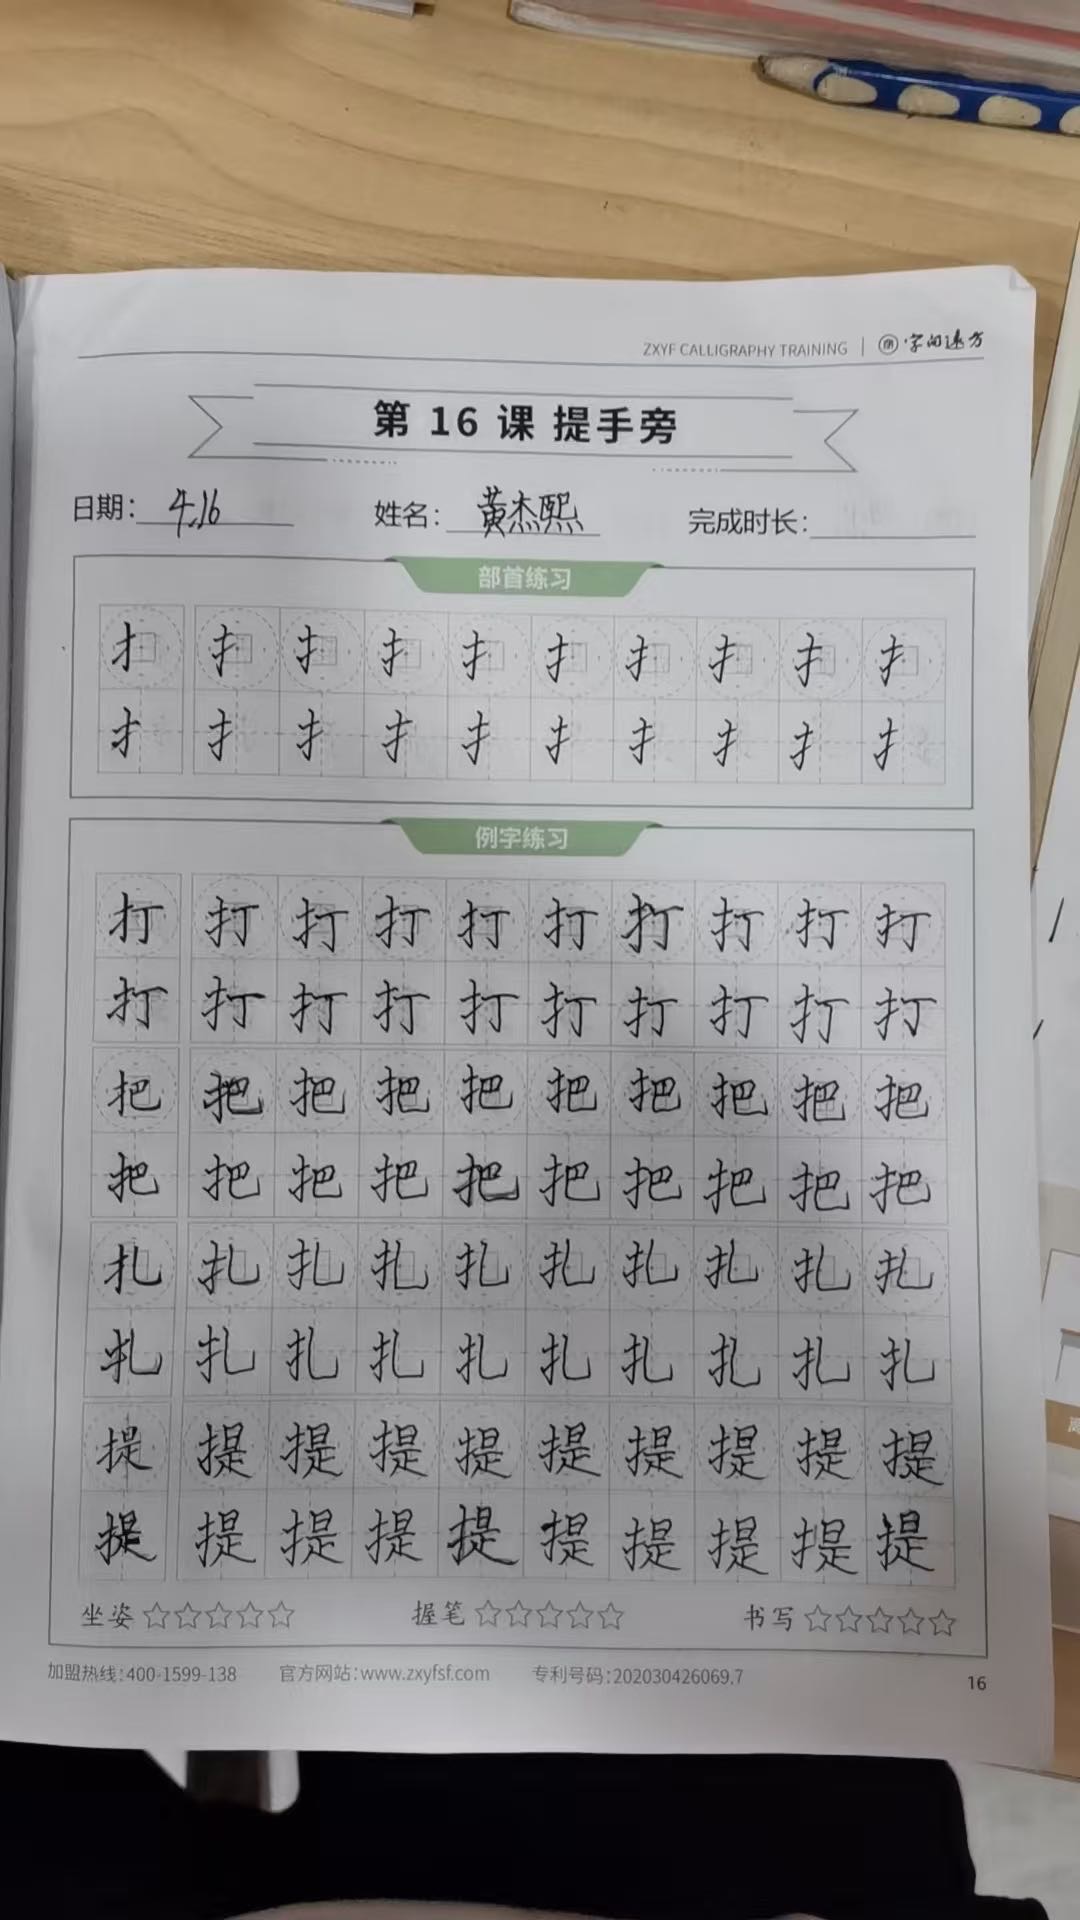 ZXYF CALLIGRAPHY TRAINING | 字间远方
第 16 课 提手旁
日期: 4.16 姓名: 黄杰熙 完成时长:
部首练习
扌 扌 扌 扌 扌 扌 扌 扌 扌 扌
扌 扌 扌 扌 扌 扌 扌 扌 扌 扌
例字练习
打 打 打 打 打 打 打 打 打 打
打 打 打 打 打 打 打 打 打 打
把 把 把 把 把 把 把 把 把 把
把 把 把 把 把 把 把 把 把 把
扎 扎 扎 扎 扎 扎 扎 扎 扎 扎
扎 扎 扎 扎 扎 扎 扎 扎 扎 扎
提 提 提 提 提 提 提 提 提 提
提 提 提 提 提 提 提 提 提 提
坐姿 ☆☆☆☆☆ 握笔 ☆☆☆☆☆ 书写 ☆☆☆☆☆
加盟热线:400-1599-138 官方网站:www.zxyfsf.com 专利号码:202030426069.7
16